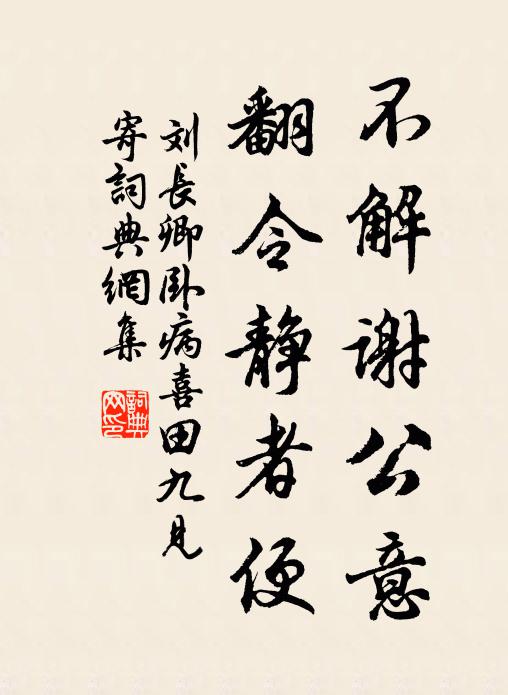 不解谢公意
翻令静者便
刘长卿卧病喜田九见
寄詞典網集
詞典
网印